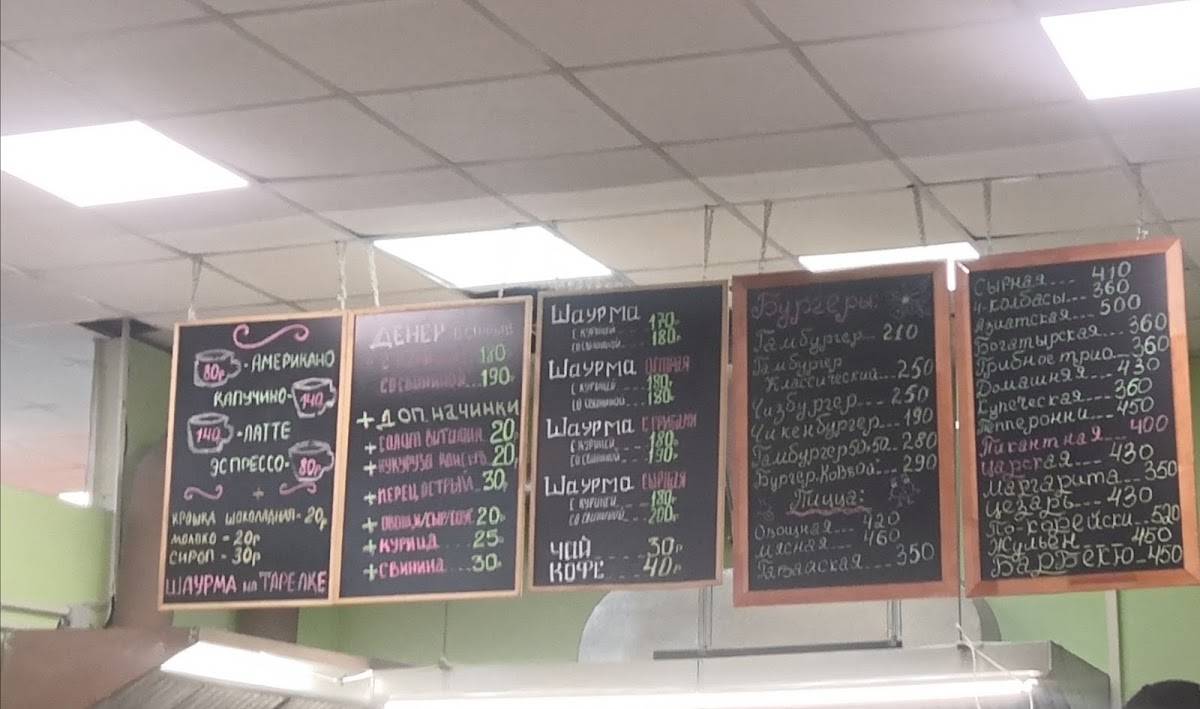 80р - АМЕРИКАНО
КАПУЧИНО - 140
140 - ЛАТТЕ
ЭСПРЕССО - 80р
+
КРОШКА ШОКОЛАДНАЯ - 20р
МОЛОКО - 20р
СИРОП - 30р
ШАУРМА на ТАРЕЛКЕ
ДЕНЕР
180
СО СВИНИНОЙ 190р
+ ДОП. НАЧИНКИ
+ САЛАТ ВИТАМИН 20р
+ КУКУРУЗА КОНСЕРВ 20р
+ ПЕРЕЦ ОСТРЫЙ 30р
+ ОВОЩИ/СЫР/СОУС 20р
+ КУРИЦА ... 25р
+ СВИНИНА ... 30р
ШАУРМА
С КУРИЦЕЙ 170р
СО СВИНИНОЙ 180р
ШАУРМА ОСТРАЯ
С КУРИЦЕЙ 180р
СО СВИНИНОЙ 180р
ШАУРМА С ГРИБАМИ
С КУРИЦЕЙ 180р
СО СВИНИНОЙ 190р
ШАУРМА СЫРНАЯ
С КУРИЦЕЙ 180р
СО СВИНИНОЙ 200р
ЧАЙ 30р
КОФЕ 40р
Бургеры:
Гамбургер... 210
Гамбургер
Классический... 250
Чизбургер... 250
Чикенбургер... 190
Гамбургер 50х50. 280
Бургер. Ковбой... 290
Пицца:
Овощная... 420
Мясная... 460
Гавайская... 350
Сырная.... 410
4-колбасы... 360
Азиатская... 500
Богатырская... 360
Грибное трио... 360
Домашняя... 430
Купеческая... 360
Пепперонни... 450
Пикантная... 400
Царская... 430
Маргарита... 350
Цезарь... 430
По-корейски... 520
Жульен... 450
БАРБЕКЮ - 450